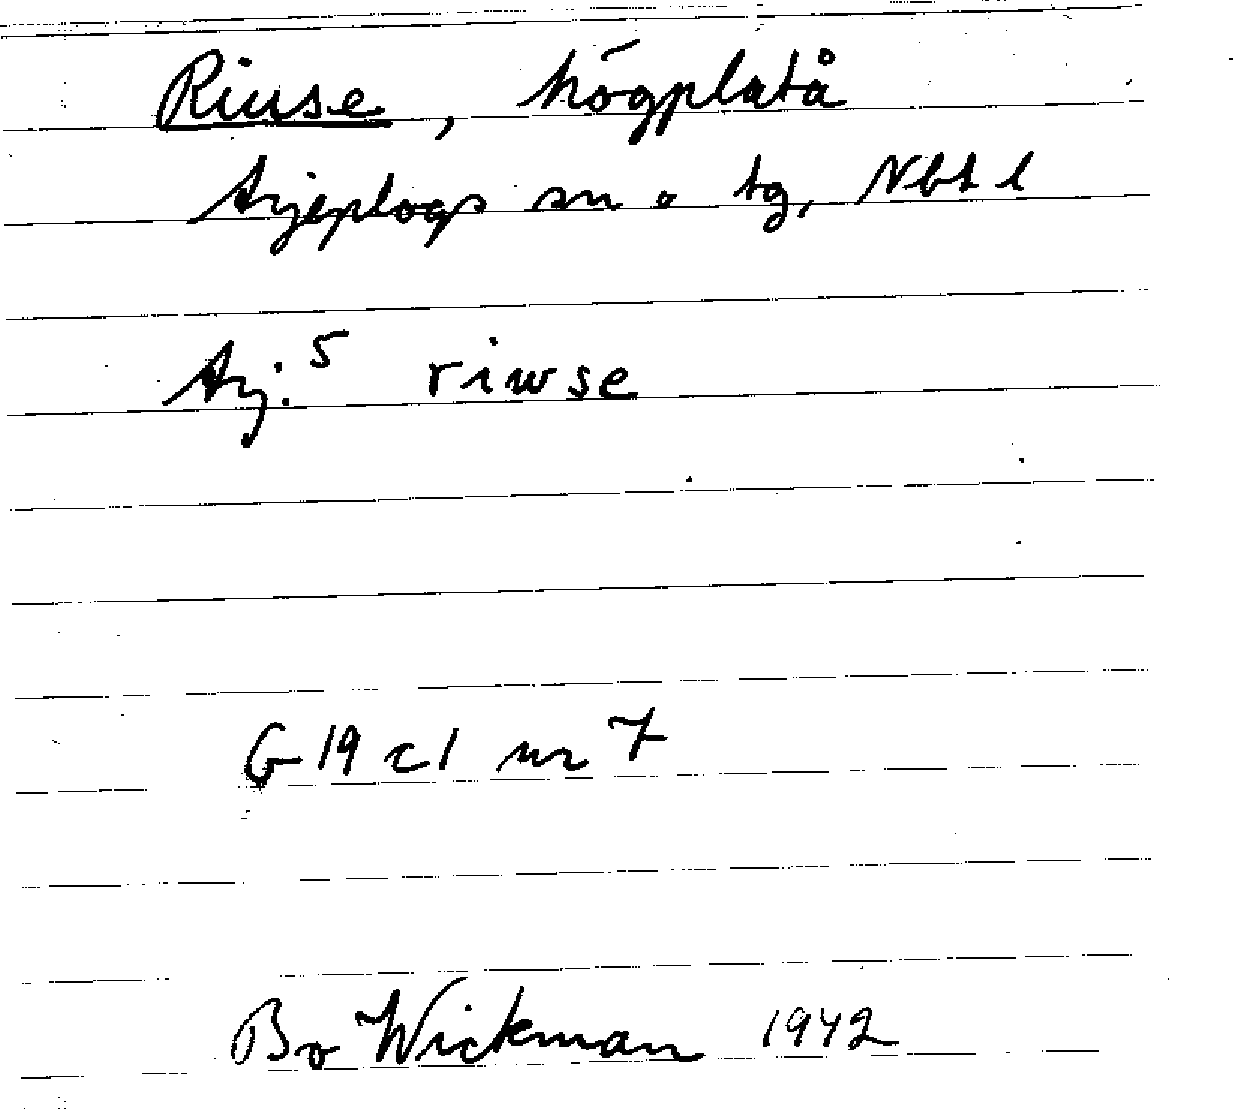 Riuse, högplatå
Arjeplogs sn o tg, Nbt l
Arj.⁵ riwse
G 19 c1 nr 7
Bo Wickman 1942